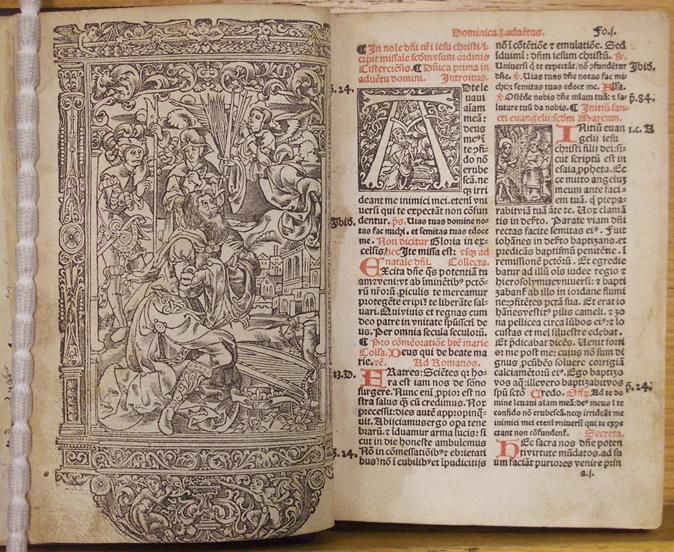 Dominica.j.aduẽtus. Fo.j.
¶ In noĩe dñi nr̃i iesu christi / ĩ
cipit missale scd̃m vsum ordinis
Cisterciẽsis. ¶ Dñica prima in
aduẽtu domini. Introitus.
p̃.24.
AD te le
uaui
aĩam
meã:
deus
meꝰ ĩ
te ꝯfi
do nõ
erube
scã. ne
qꝫ irri
deant me inimici mei. etenĩ vni
uersi qui te expectant non cõfun
dentur. p̃s. Uias tuas domine no
Ibid.
tas fac michi. et semitas tuas edoce me.
Non dicitur Gloria in ex
celsis / nec Ite missa est: vsqꝫ ad
natale dñi. Collecta.
EXcita dñe q̃s potentiã tu
am ⁊ veni: vt ab iminẽtibꝰ pctõ
rũ nr̃orũ piculis te mereamur
protegẽte eripi: te liberãte sal
uari. Qui viuis et regnas cum
deo patre in vnitate sp̃ussctĩ de
us. Per omnia secula seculorũ.
¶ Pro cõmemoratiõe btẽ marie
Coll̃a. Deus qui de beate ma
rie. ⁊c. Ad Romanos.
13.D.
FRatres: Sciẽtes qꝛ ho
ra est iam nos de sõno
surgere. Nunc enĩ ppior est no
stra salus q̃ cũ credimus. Nox
precessit: dies autẽ appropinq̃
uit. Abijciamus ergo opa tene
brarũ: ⁊ iduamur arma lucis: si
cut in die honeste ambulemus
Nõ in comessatiõibꝰ ⁊ ebrietati
p̃.24.
bus: nõ ĩ cubilibꝰ ⁊ ĩpudicitijs
nõ ĩ cõtẽtiõe ⁊ emulatiõe. Sed
ĩduimĩ: dñm iesum christũ. Gr̃.
Uniuersi q̃ te expectãt / nõ ꝯfundẽtur Ibid.
dñe. v̾. Uias tuas dñe notas fac mi
chi: ⁊ semitas tuas edoce me. Alla.
v̾. Ostẽde nobis dñe miam tuã: ⁊ sa p̃.84.
lutare tuũ da nobis. ¶ Initiũ san
cti euangelij scd̃m Marcum.
INitiũ euan 1.c. A
gelij iesu
christi filij dei: si
cut scriptũ est in
esaia ppheta. Ec
ce mitto angelũ
meum ante faci
em tuã. q̃ prepa
rabit viã tuã ãte te. Uox clamã
tis in deserto. Parate viam dñi:
rectas facite semitas eiꝰ. Fuit
iohãnes in deserto baptizans. et
predicãs baptismũ penitẽtie. ĩ
remissionẽ pctõrũ. Et egredie
batur ad illũ oĩs iudee regio ⁊
hierosolymite vniuersi: ⁊ bapti
zabanẽ ab illo in iordane flumi
ne: ꝯfitẽtes pctã sua. Et erat io
hãnes vestitꝰ pilis cameli. ⁊ zo
na pellicea circa lũbos eiꝰ: ⁊ lo
custas et mel siluestre edebat.
Et p̃dicabat dicẽs. Uenit forti
or me post me: cuius nõ sum di
gnus pcũbẽs soluere corrigiã
calciamẽtorũ eiꝰ. Ego baptizo
vos aq̃: ille vero baptizabit vos
sp̃u sctõ. Credo. Offr̃. Ad te do p̃.24.
mine leuaui aĩam meã: deꝰ meus ĩ te
confido nõ erubescã. neqꝫ irrideãt me
inimici mei: etenĩ vniuersi qui te expe
ctant non cõfundent̃. Secreta.
HEc sacra nos dñe poten
ti virtute mũdatos. ad su
um faciãt puriores venire prin
a.j.